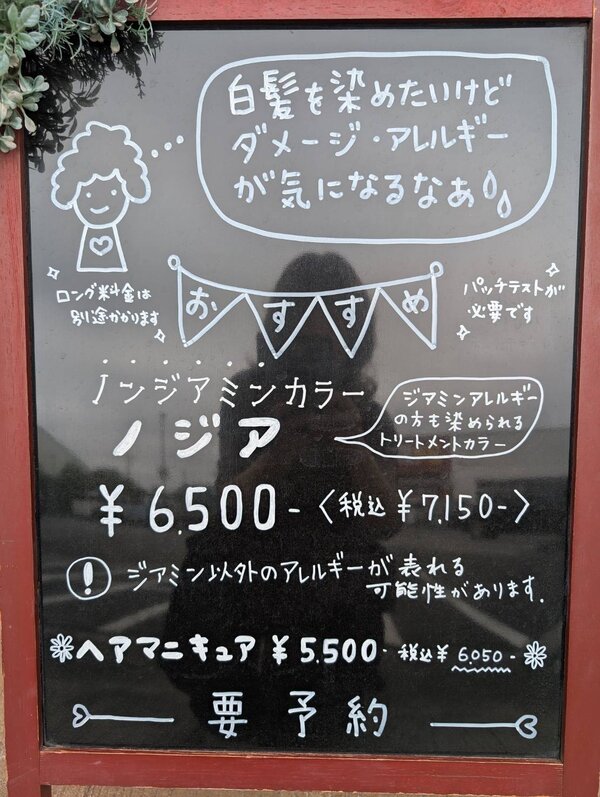 白髪を染めたいけど
ダメージ・アレルギー
が気になるなあ
おすすめ
ロング料金は
別途かかります
パッチテストが
必要です
ノンジアミンカラー
ノジア
ジアミンアレルギー
の方も染められる
トリートメントカラー
¥6,500- 〈税込¥7,150-〉
! ジアミン以外のアレルギーが表れる
可能性があります.
ヘアマニキュア ¥5,500- 税込¥6,050-
要予約